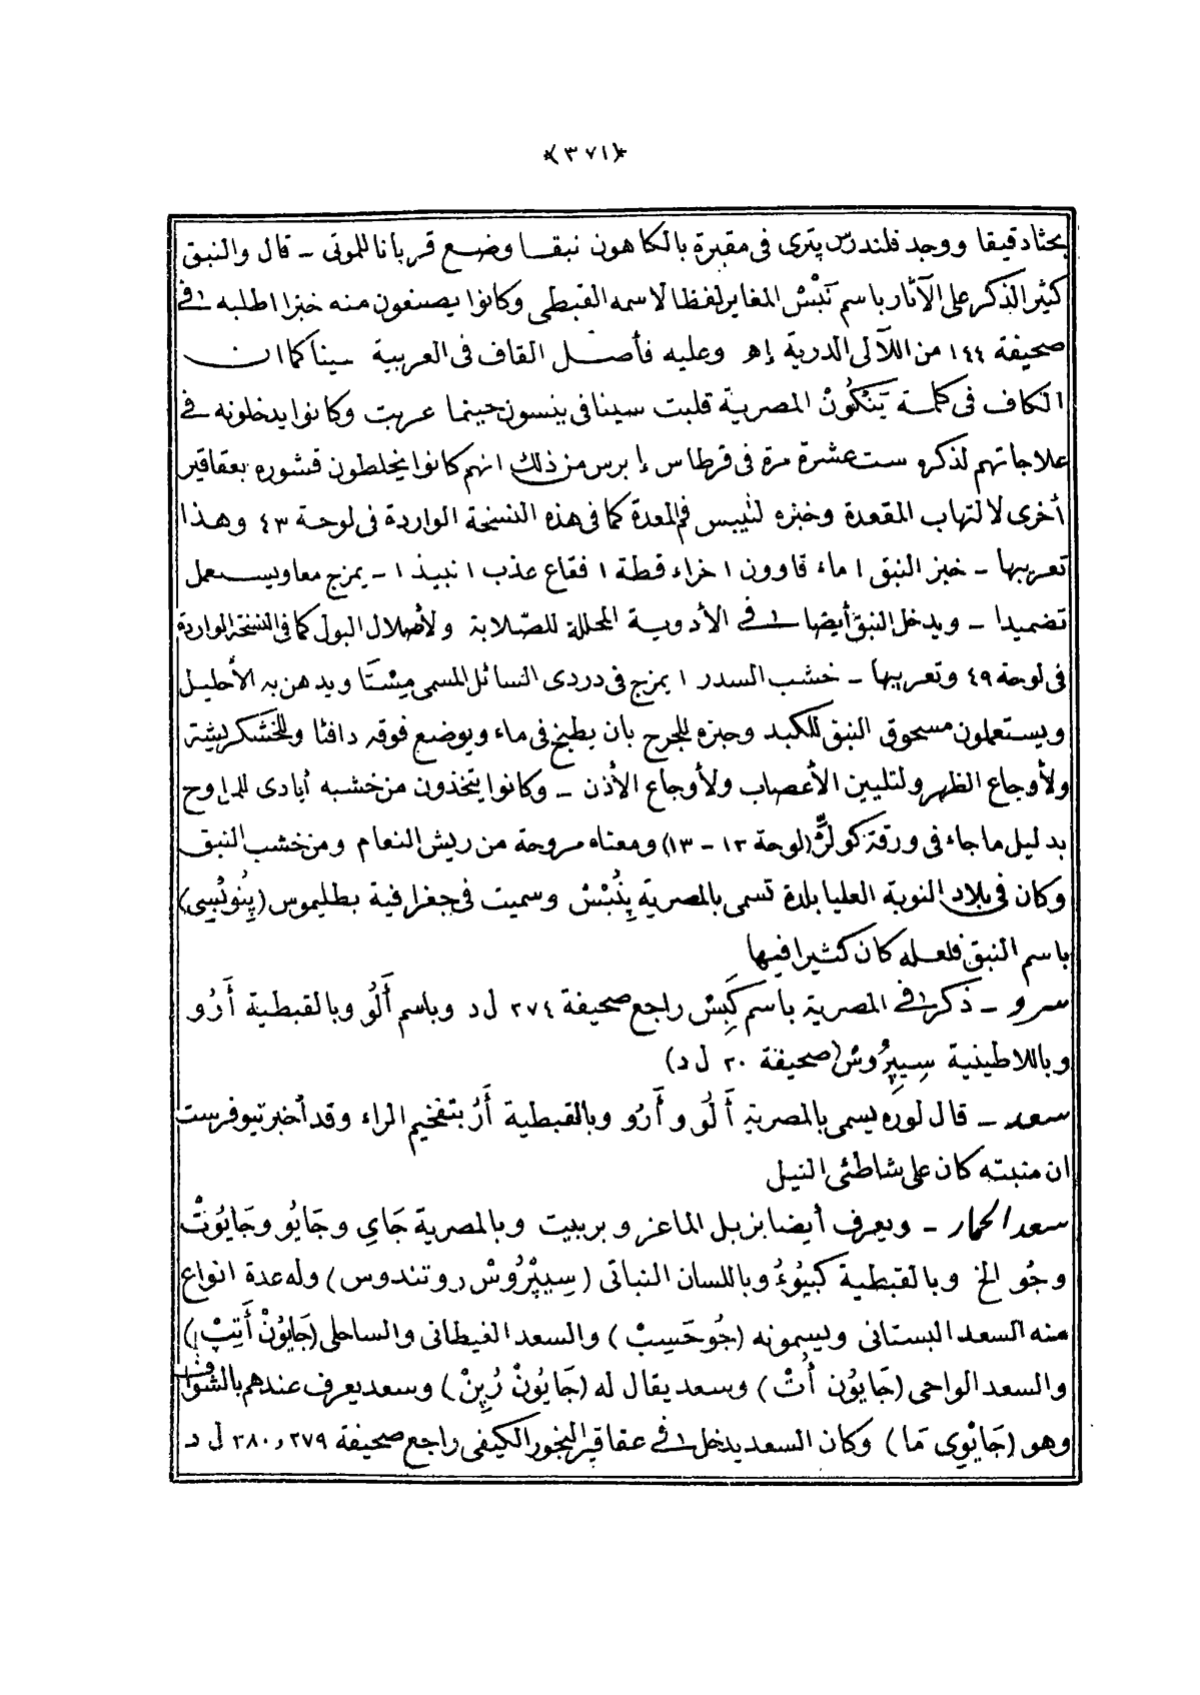 ﴿٣٧١﴾
بحثا دقيقا ووجد فلندرس پترى فى مقبرة بالكاهون نبقا وضع قربانا للموتى – قال والنبق
كثير الذكر على الآثار باسم نَبْسْ المغاير لفظا لاسمه القبطى وكانوا يصنعون منه خبزا اطلبه فى
صحيفة ١٤٤ من اللآلى الدرية إهـ وعليه فأصل القاف فى العربية سينا كما ان
الكاف فى كلمة يَنْكُونْ المصرية قلبت سينا فى ينسون حينما عربت وكانوا يدخلونه فى
علاجاتهم لذكره ست عشرة مرة فى قرطاس إبرس من ذلك انهم كانوا يخلطون قشوره بعقاقير
أخرى لالتهاب المقعدة وخبزه لتيبس فم المعدة كما فى هذه النسخة الواردة فى لوحة ٤٣ وهذا
تعريبها – خبز النبق ١ ماء قاوون ١ خراء قطة ١ فقاع عذب ١ نبيذ ١ – يمزج معا ويستعمل
تضميدا – ويدخل النبق أيضا فى الأدوية المحللة للصلابة ولأصلال البول كما فى النسخة الواردة
فى لوحة ٤٩ وتعريبها – خشب السدر ١ يمزج فى دردى السائل المسمى مِسْتَا ويدهن به الأحليل
ويستعملون مسحوق النبق للكبد وخبزه للجرح بان يطبخ فى ماء ويوضع فوقه دافئا وللخشكريشة
ولأوجاع الظهر ولتليين الأعصاب ولأوجاع الأذن – وكانوا يتخذون من خشبه أيادى للمراوح
بدليل ما جاء فى ورقة كولر (لوحة ١٣ – ١٣) ومعناه مروحة من ريش النعام ومن خشب النبق
وكان فى بلاد النوبة العليا بلدة تسمى بالمصرية پِنُبْسْ وسميت فى جغرافية بطليموس (پِنُوبْسِى)
باسم النبق فلعله كان كثيرا فيها
سرو – ذكر فى المصرية باسم كَبِسْ راجع صحيفة ٢٧٤ ل د وباسم أَلُو وبالقبطية أَرُو
وباللاطينية سِيپِرُوسْ (صحيفة ٢٠ ل د)
سعد – قال لوره يسمى بالمصرية أَلُو وأَرُو وبالقبطية أَرُ بتفخيم الراء وقد أخبر تيوفرست
ان منبته كان على شاطئى النيل
سعد الحمار – ويعرف أيضا بزبل الماعز وبربيت وبالمصرية جَاي وجَايُو وجَايُوتْ
وجُو الخ وبالقبطية كَبيُوءُ وباللسان النباتى (سِيپْرُوسْ روتندوس) وله عدة انواع
منه السعد البستانى ويسمونه (جُوحَسِبْ) والسعد الغيطانى والساحلى (جَايُونْ أَتِبْ)
والسعد الواحى (جَايُون أُتْ) وسعد يقال له (جَايُونْ رُبِنْ) وسعد يعرف عندهم بالشوا
وهو (جَايْوى مَا) وكان السعد يدخل فى عقاقير البخور الكيفى راجع صحيفة ٢٧٩ و٣٨٠ ل د